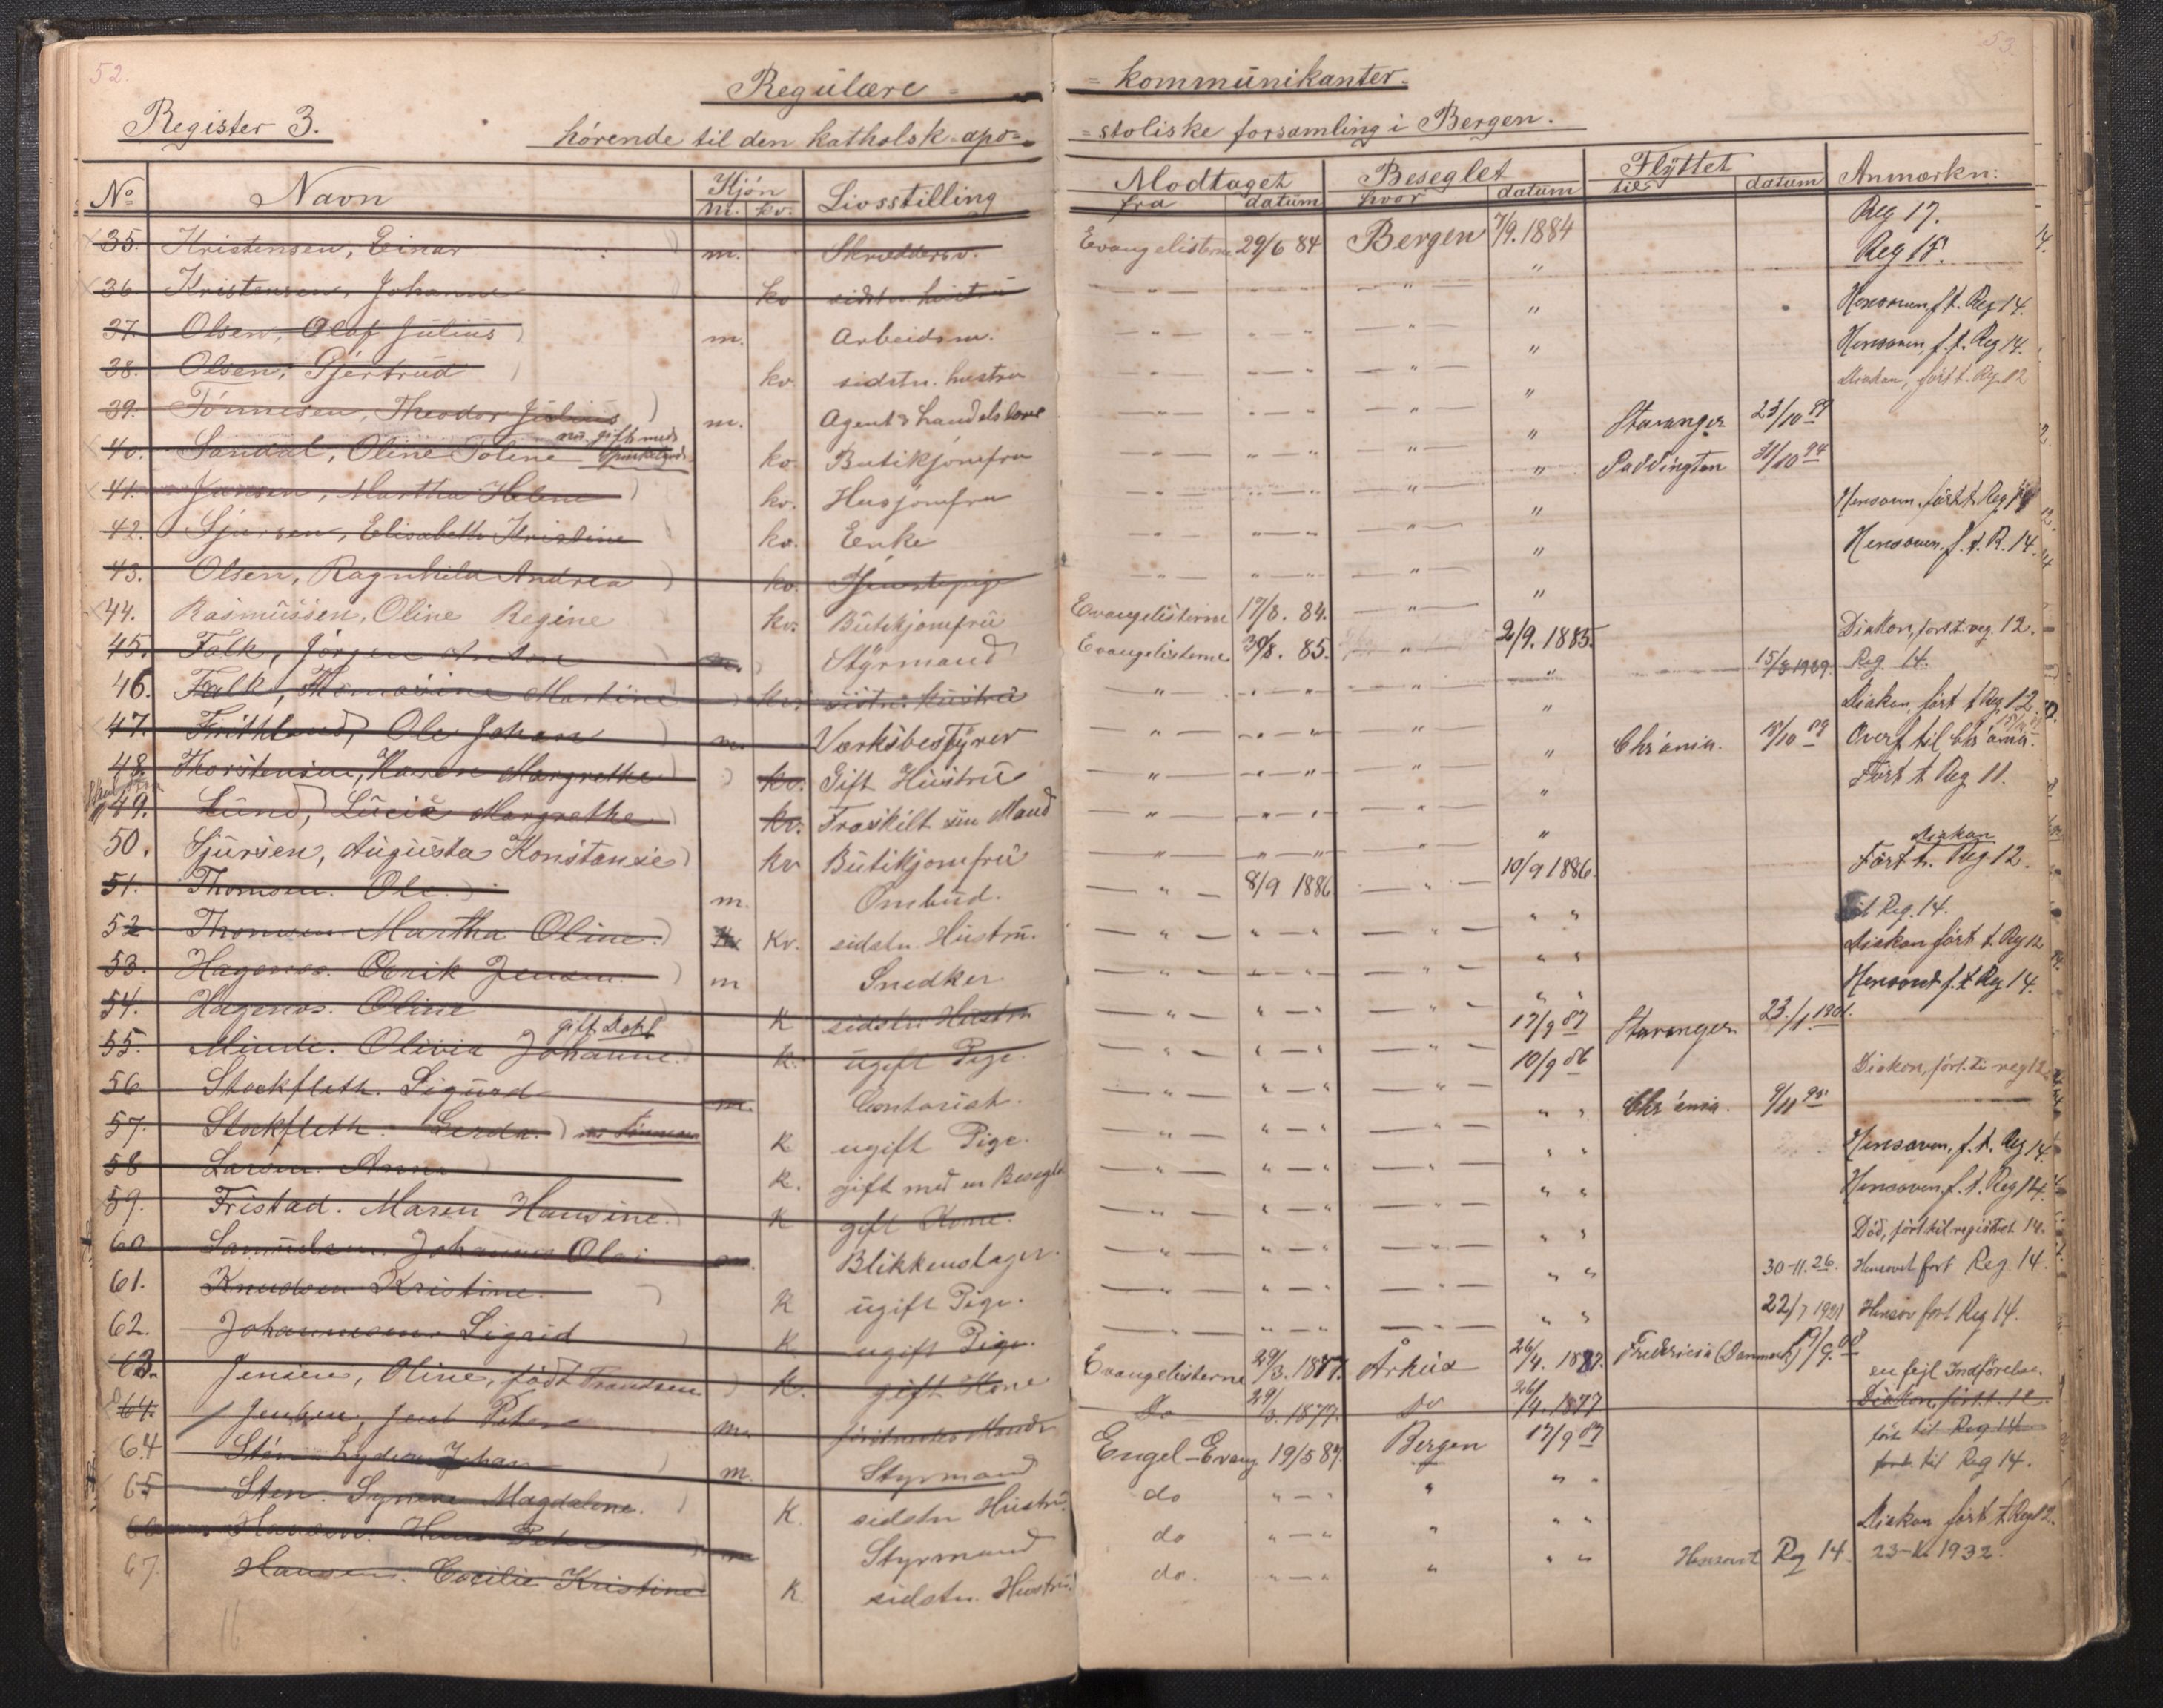 52.
53.
Regulære = = kommunikanter.
Register 3. hörende til den katholsk-apo= =stoliske forsamling i Bergen.
No Navn Kjön Livsstilling Modtaget Beseglet Flyttet Anmærkn:
m. kv. fra datum hvor datum til datum
Reg 17.
35. Kristensen, Einar m. Skræddersv. Evangelisterne 29/6 84 Bergen 7/9. 1884 Reg 15.
36. Kristensen, Johanne kv sidstn. hustru " " " "
37. Olsen, Olaf Julius m. Arbeidsm. " " " " Hensoven, f. t. Reg 14.
38. Olsen, Gjertrud kv. sidstn. hustru " " " " Hensoven, f. t. Reg 14.
39. Tönnesen, Theodor Julius m. Agent & handelsborg " " " " Diakon, fört t. Reg. 12
40. Sandal, Oline Toline nu gift med kv. Butikjomfru " " " " Stavanger 23/10 89
41. Jansen, Martha Helene kv. Husjomfru " " " " Paddington 31/10 94
42. Sjursen, Elisabeth Kristine kv. Enke " " " " Hensoven, fört t. Reg 14
43. Olsen, Ragnhild Andrea kv. Tjenestepige " " " " Hensoven. f. t. R. 14.
44. Rasmussen, Oline Regine kv. Butikjomfru Evangelisterne 17/8. 84. " "
45. Falk, Jörgen Anton m. Styrmand Evangelisterne 30/8. 85. " 2/9. 1885. Diakon, fört t. reg. 12.
46. Falk, Thomasine Martine kv. sidstn. hustru " " " " 15/8 1939. Reg. 14.
47. Frithland, Ole Johan m. Værksbestyrer " " " " Diakon, fört t Reg 12.
48. Thorstensen, Karen Margrethe kv. Gift Hustru " " " " Chr'ania. 18/10 89 Overf til Chr'ania.
49. Lund, Lucie Margrethe kv. Fraskilt sin Mand " " " " Fört t. Reg 11.
50. Sjursen, Augusta Konstanse kv Butikjomfru " " " "
51. Thomsen. Ole. m. Ombud. " 8/9 1886 " 10/9 1886. Diakon Fört t. Reg 12.
52 Thomsen Martha Oline. Kv. sidstn. Hustru. " " " " " t Reg. 14.
53. Hagenos. Ovrik Jensen. m Snedker " " " " " Diakon fört t. Reg 12
54. Hagenos. Oline K sidstn Hustru " " " " " Hensovet f. t Reg 14.
55. Minde. Olivia Johanne. gift Dahl K. ugift Pige. " " " 17/9 87 Stavanger 23./1 1901.
56 Stockfleth. Sigurd m. Contorist. " " " 10/9 86 Diakon, fört. til reg 12
57. Stockfleth. Gerda. K ugift Pige. " " " " " Chr'ania. 9/11 95
58 Larsen. Anna K. gift med en Besegl. " " " " " Hensoven, f. t. Reg 14.
59. Fristad. Maren Hansine. K gift Kone. " " " " " Hensoven, f. t. Reg 14.
60. Samuelsen Johannes Olai m. Blikkenslager. " " " " " Död, fört til registret 14.
61. Knudsen Kristine. K ugift Pige. " " " " " 30-11. 26. Hensovet fört Reg. 14.
62. Johannesen. Sigrid K. ugift Pige. " " " " " 22/7 1921 Hensov fört Reg 14.
63. Jensen, Oline, född Frandsen K. gift Kone Evangelisterne 29/3. 1887. Århus 26/4. 1887. Fredericia (Danmark) 19/9. 08 en fejl Indförelse.
64. Jensen, Jens Peter m. förstnævntes Mand Do 29/3. 1877. Do 26/4. 1877 Diakon, fört. t. 12.
64 Sten Lyder Johan m. Styrmand Engel-Evang 19/5 87. Bergen 17/9 87 fört til Reg 14
65 Sten. Synneve Magdalene. K. sidstn Hustru. do " " " " fört. til Reg 14.
66 Hansen. Hans Peter m Styrmand do " " " " Diakon fört t. Reg 12.
67. Hansen. Cecilie Kristine K. sidstn. Hustru. do. " " " " Hensovet Reg 14. 1932.